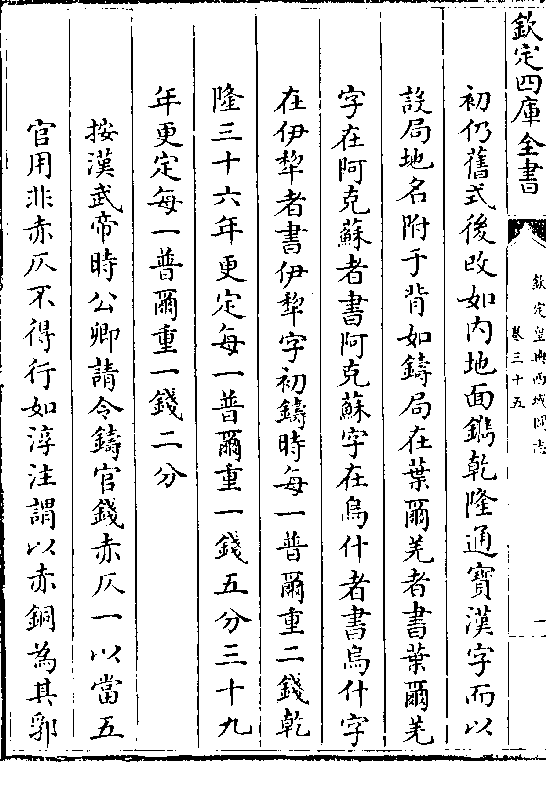 欽定四庫全書
欽定皇輿西域圖志
卷三十五
一
初仍舊式後改如内地面鐫乾隆通寶漢字而以
設局地名附于背如鑄局在葉爾羌者書葉爾羌
字在阿克蘇者書阿克蘇字在烏什者書烏什字
在伊犂者書伊犂字初鑄時每一普爾重二錢乾
隆三十六年更定每一普爾重一錢五分三十九
年更定每一普爾重一錢二分
按漢武帝時公卿請令鑄官錢赤仄一以當五
官用非赤仄不得行如淳注謂以赤銅為其郭